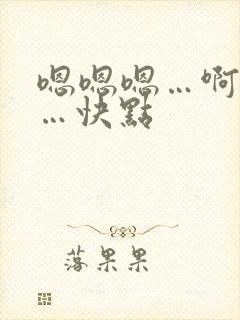 嗯嗯嗯…啊
…快點
落果果